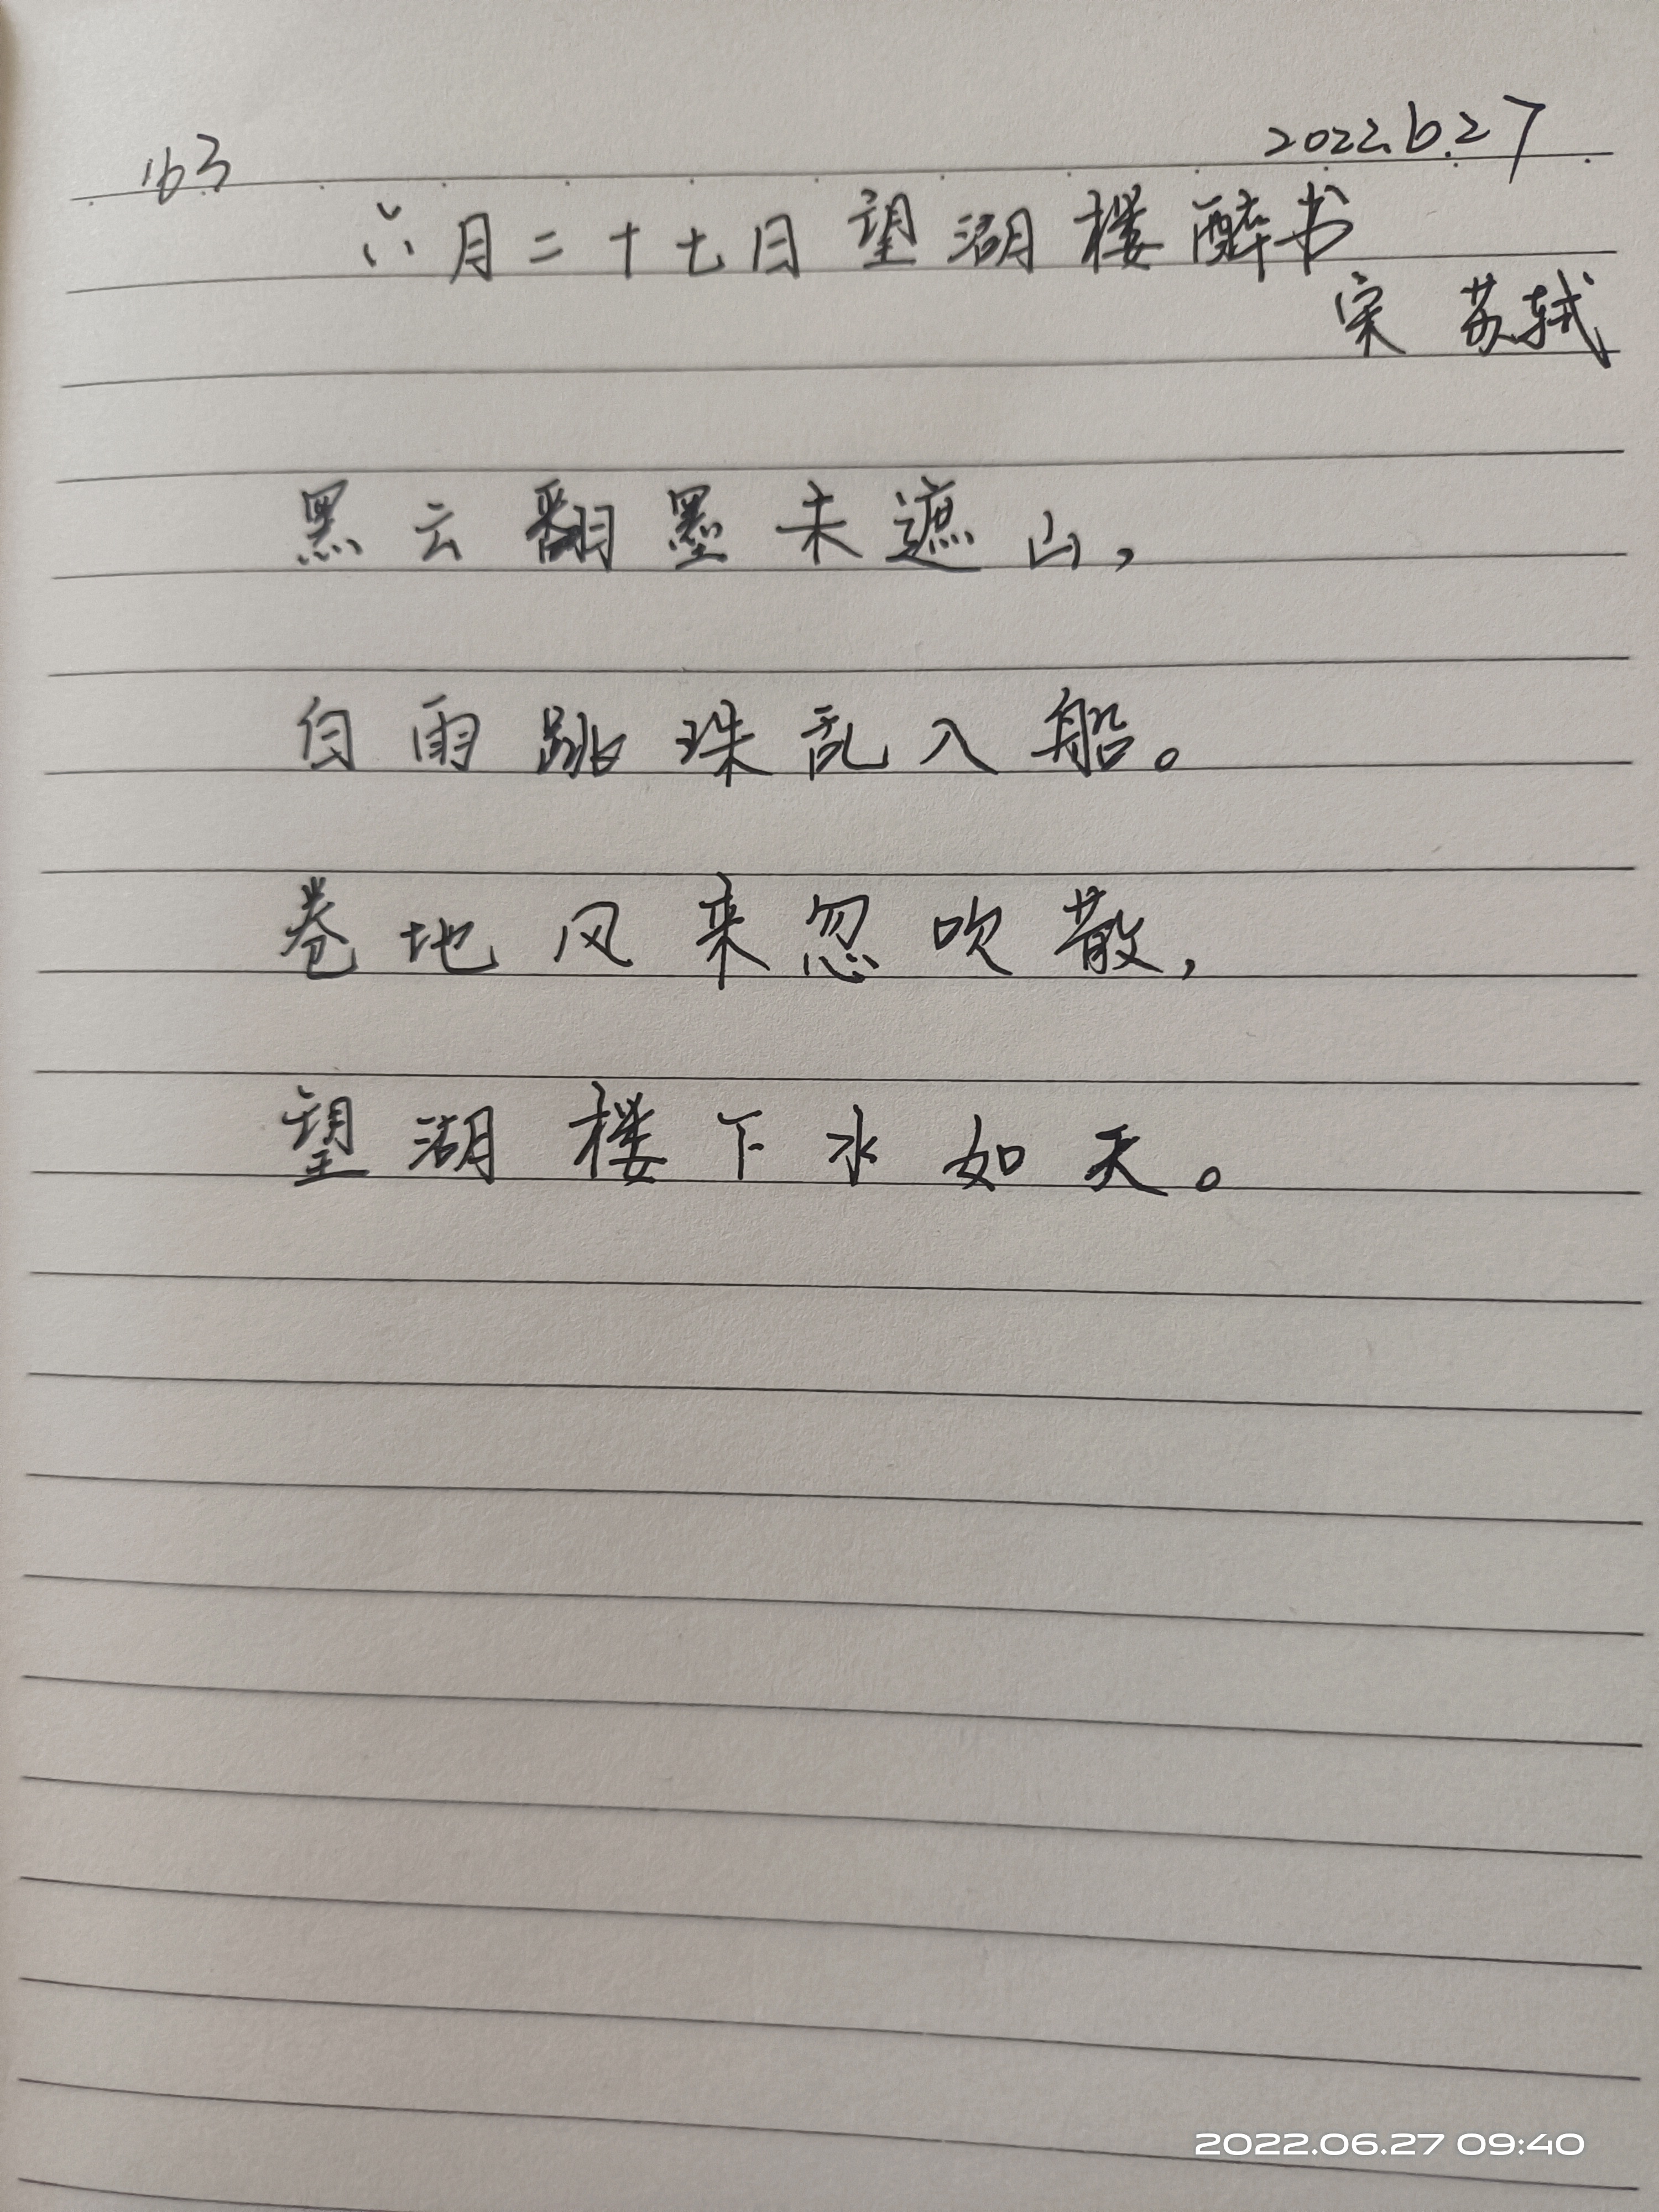 163 2022.6.27
六月二十七日望湖楼醉书
宋 苏轼
黑云翻墨未遮山,
白雨跳珠乱入船。
卷地风来忽吹散,
望湖楼下水如天。
2022.06.27 09:40